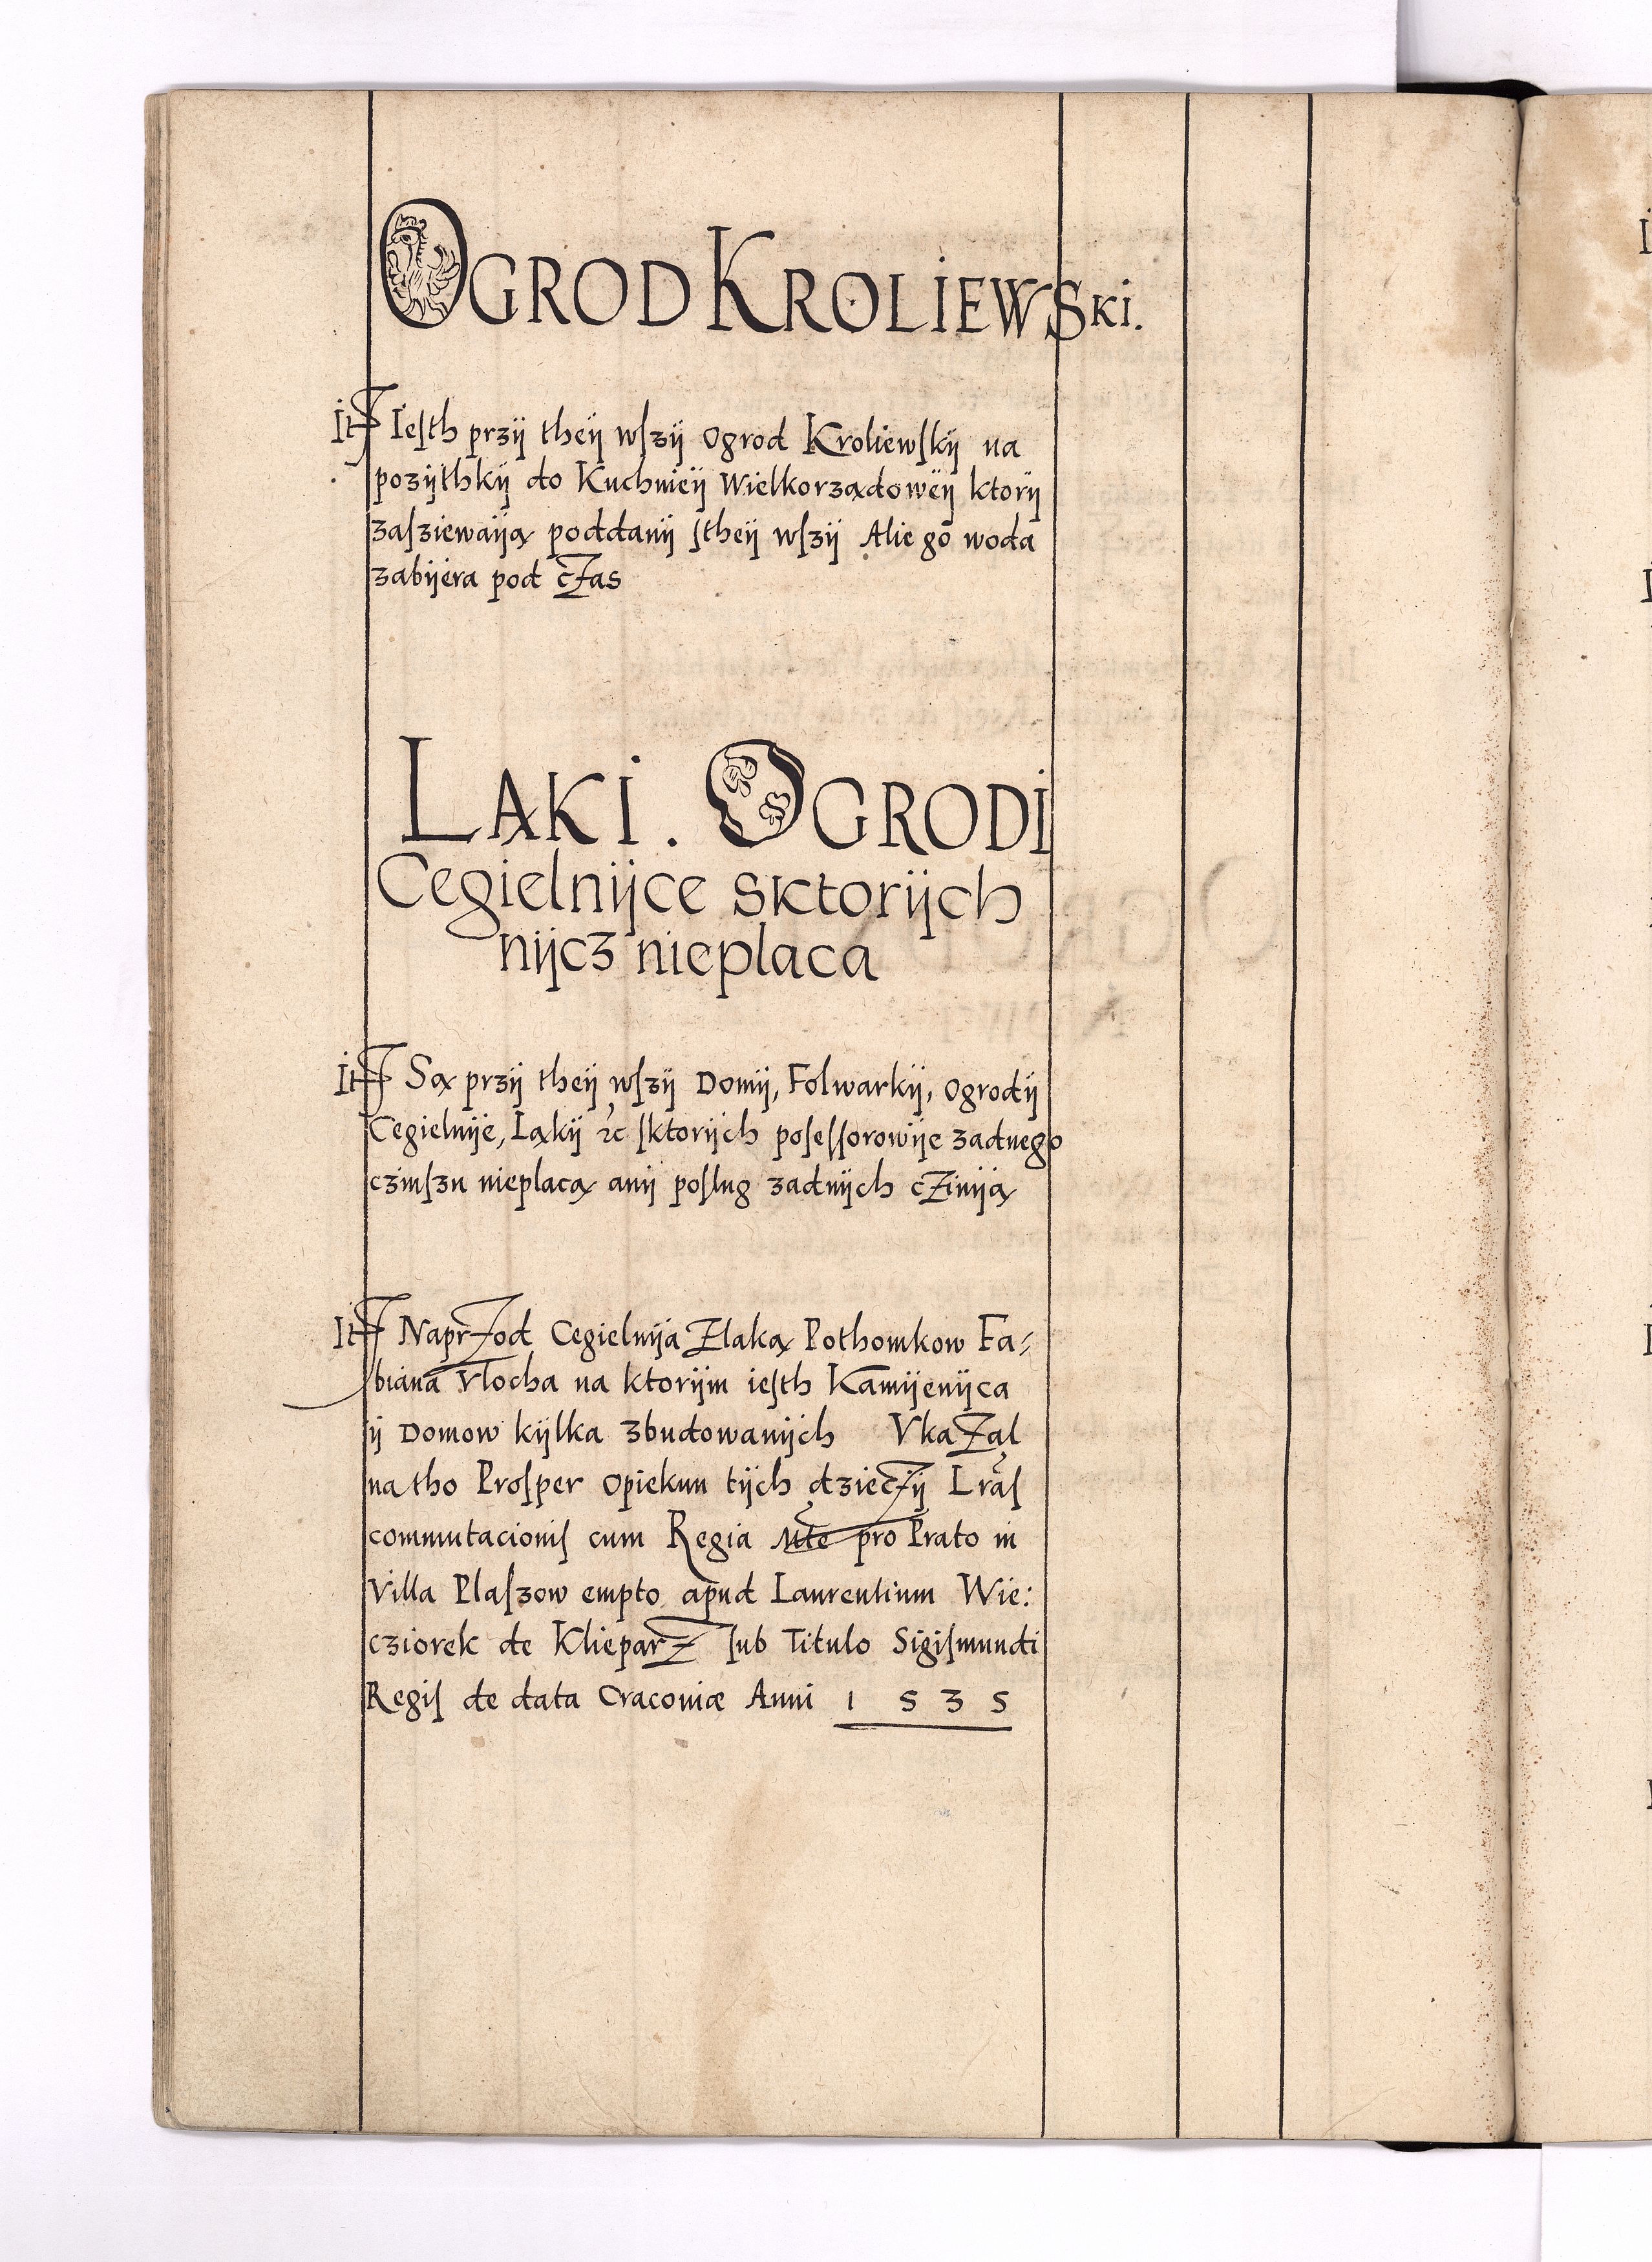 OGROD KROLIEWSki.
It Iesth przÿ theÿ wſzÿ ogrod Kroliewſkÿ na
pozÿthkÿ do Kuchnieÿ Wielkorządoweÿ ktorÿ
zaſziewaÿą poddanÿ ſtheÿ wſzÿ Alie go woda
zabÿera pod cżas
LAKI. OGRODI
Cegielnÿce sktorÿch
nÿcz nieplaca
It Są przÿ theÿ wſzÿ Domÿ, Folwarkÿ, ogrodÿ
Cegielnÿe, Ląkÿ ⁊c ſktorÿch poſeſſorowÿe zadnego
czinſzu nieplacą anÿ poſlug zadnÿch cżinÿą
It Naprzod Cegielnÿa Zlaką Pothomkow Fa⸗
biana Vlocha na ktorÿm ieſth Kamÿenÿca
ÿ Domow kÿlka zbudowanÿch Vkazal
na tho Proſper opiekun tÿch dzieczÿ Lraſ
commutacioniſ cum Regia Mte pro Prato in
Villa Plaſzow empto apud Laurentium Wie:
cziorek de Klieparz ſub Titulo Sigiſmundi
Regiſ de data Cracouiæ Anni 1 5 3 5